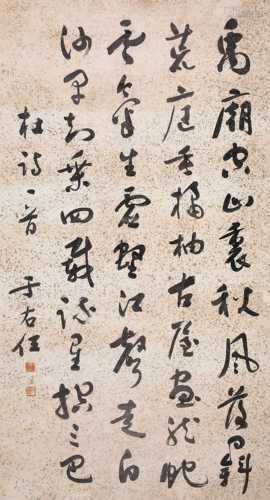 禹廟空山裏秋風落日斜
荒庭垂橘柚古屋畫龍蛇
雲氣生虛壁江聲走白
沙早知乘四載疏鑿控三巴
杜詩一首
于右任